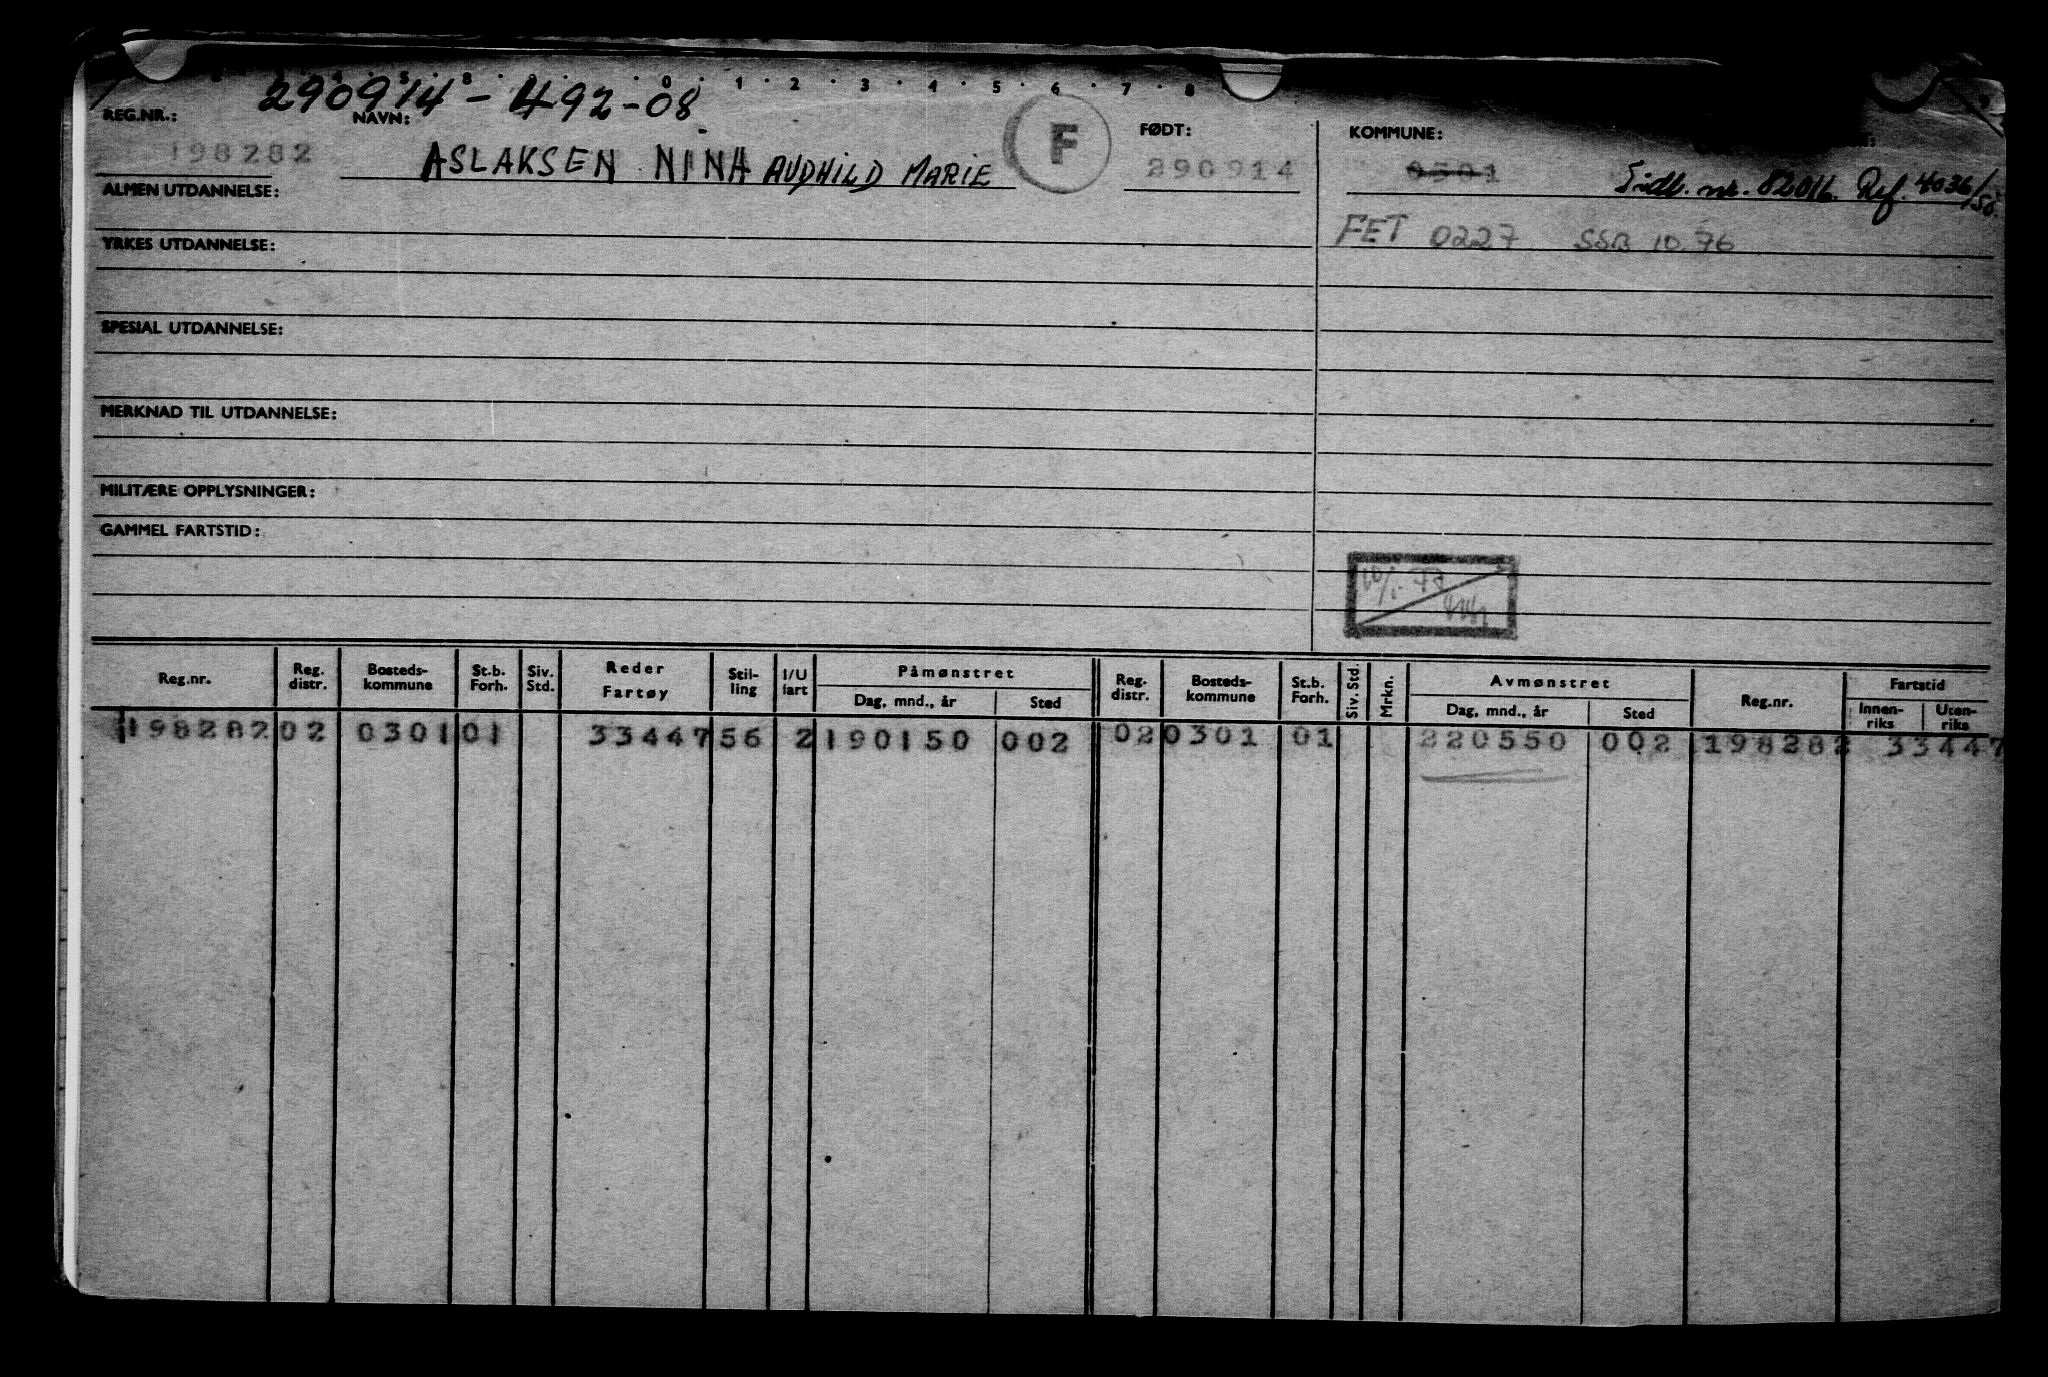 4 5 8 0 1 2 3 4 5 6 7 8
290914-49208
REG.NR.: NAVN: F FØDT: KOMMUNE:
198282 ASLAKSEN NINA AUDHILD MARIE 290914 0301 Tidl. nr. 82016. Ref. 4036/50.
ALMEN UTDANNELSE:
FET 0227 SSB 10.76
YRKES UTDANNELSE:
SPESIAL UTDANNELSE:
MERKNAD TIL UTDANNELSE:
MILITÆRE OPPLYSNINGER:
GAMMEL FARTSTID:
10/1-77
Reg.nr. Reg. distr. Bosteds-kommune St.b. Forh. Siv. Std. Reder Fartøy Stil-ling I/U fart Påmønstret Dag, mnd., år Sted Reg. distr. Bosteds-kommune St.b. Forh. Siv. Std. Mrkn. Avmønstret Dag, mnd., år Sted Reg.nr. Fartstid Innen-riks Uten-riks
198282 02 0301 01 33447 56 2 190150 002 02 0301 01 220550 002 198282 33447